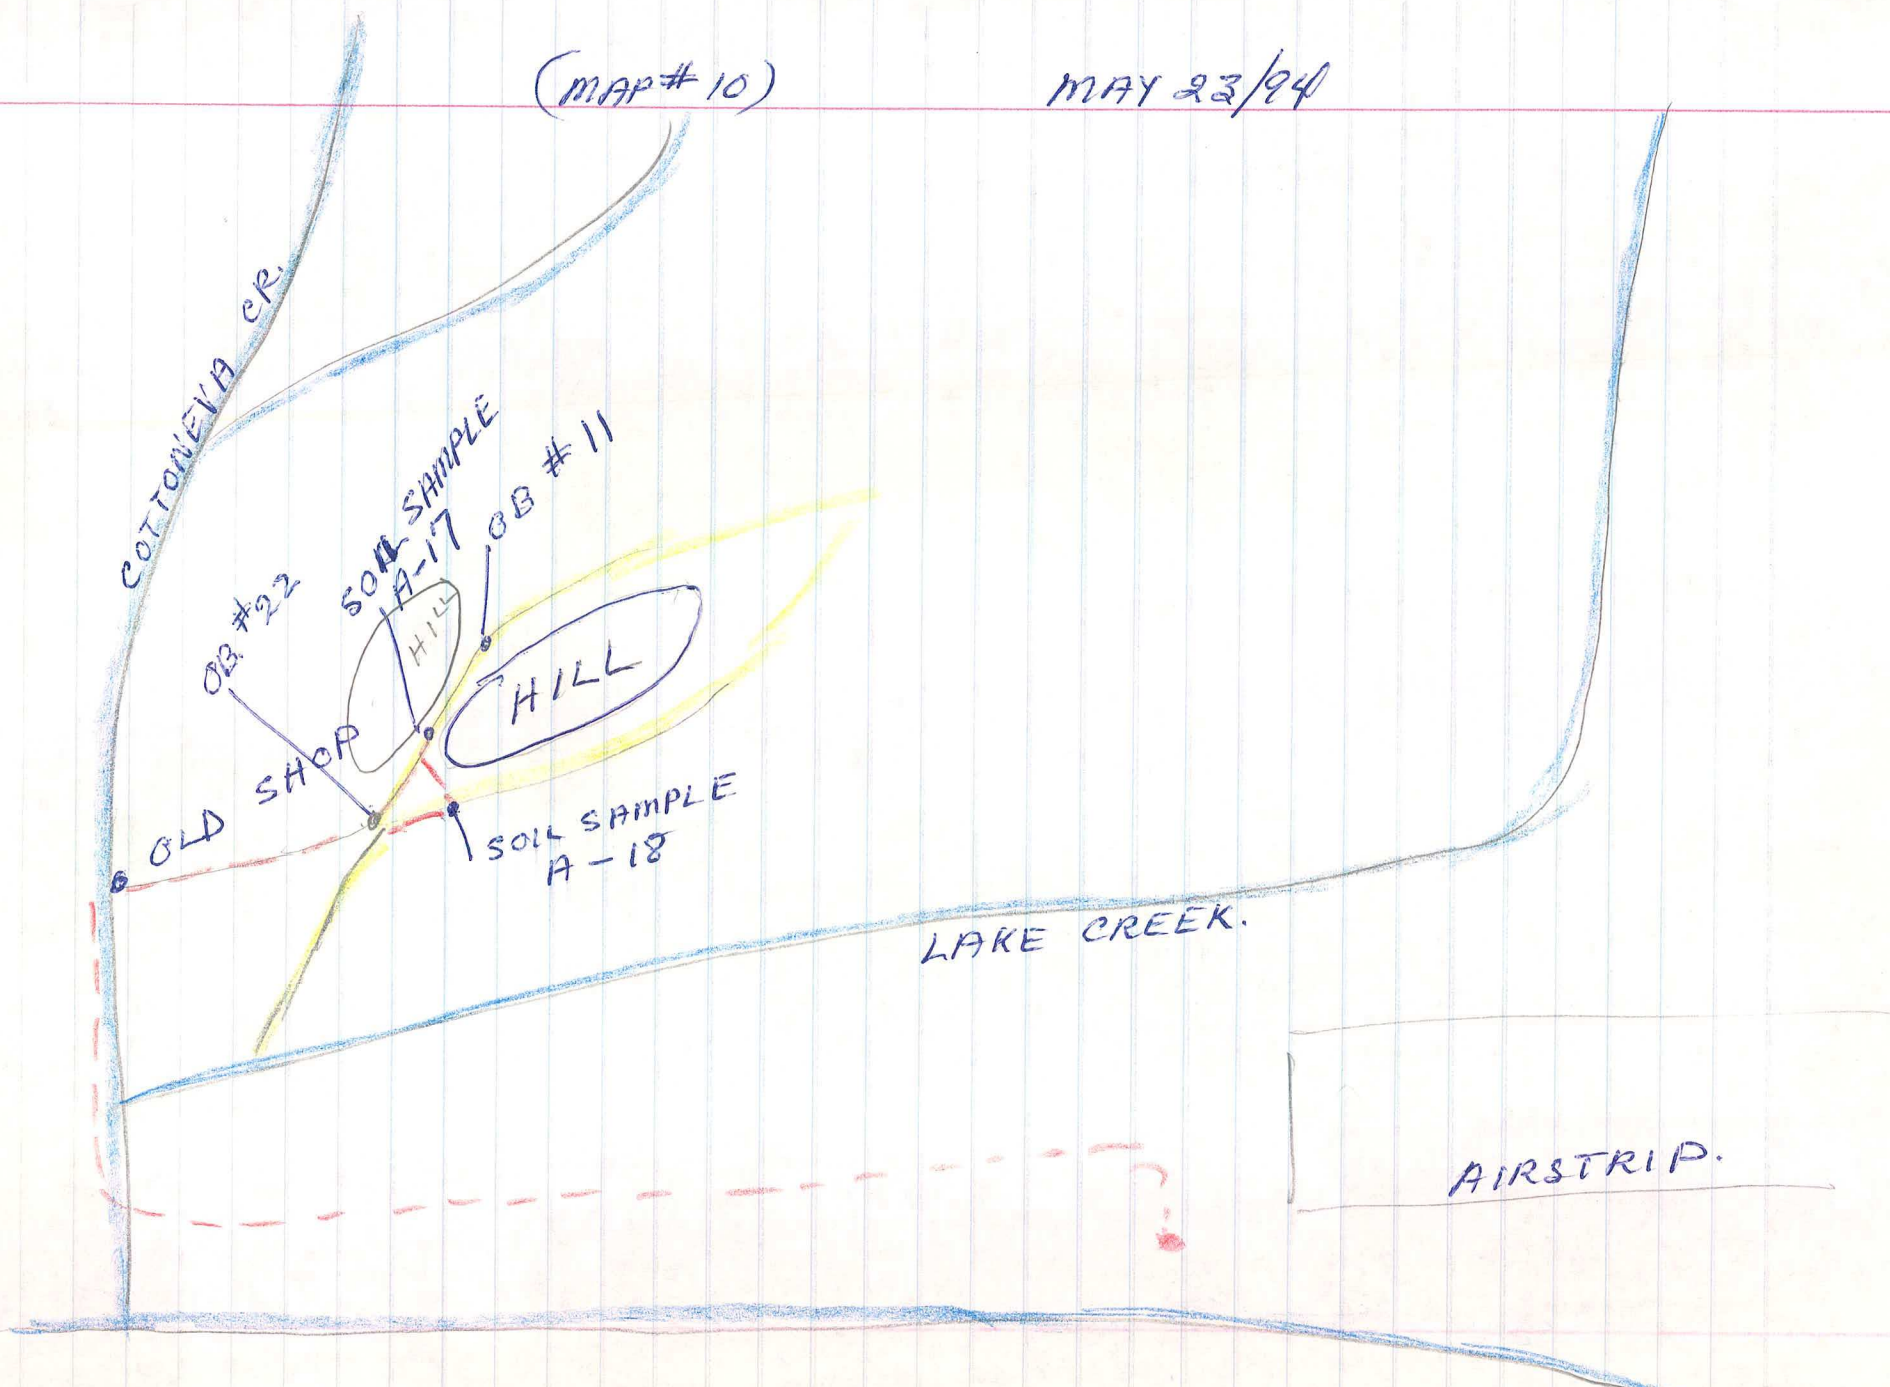 (MAP# 10)
MAY 23/94
COTTONEVA CR.
SOIL SAMPLE
A-17
OB #11
OB #22
HILL
HILL
OLD SHOP
SOIL SAMPLE
A-18
LAKE CREEK.
AIRSTRIP.